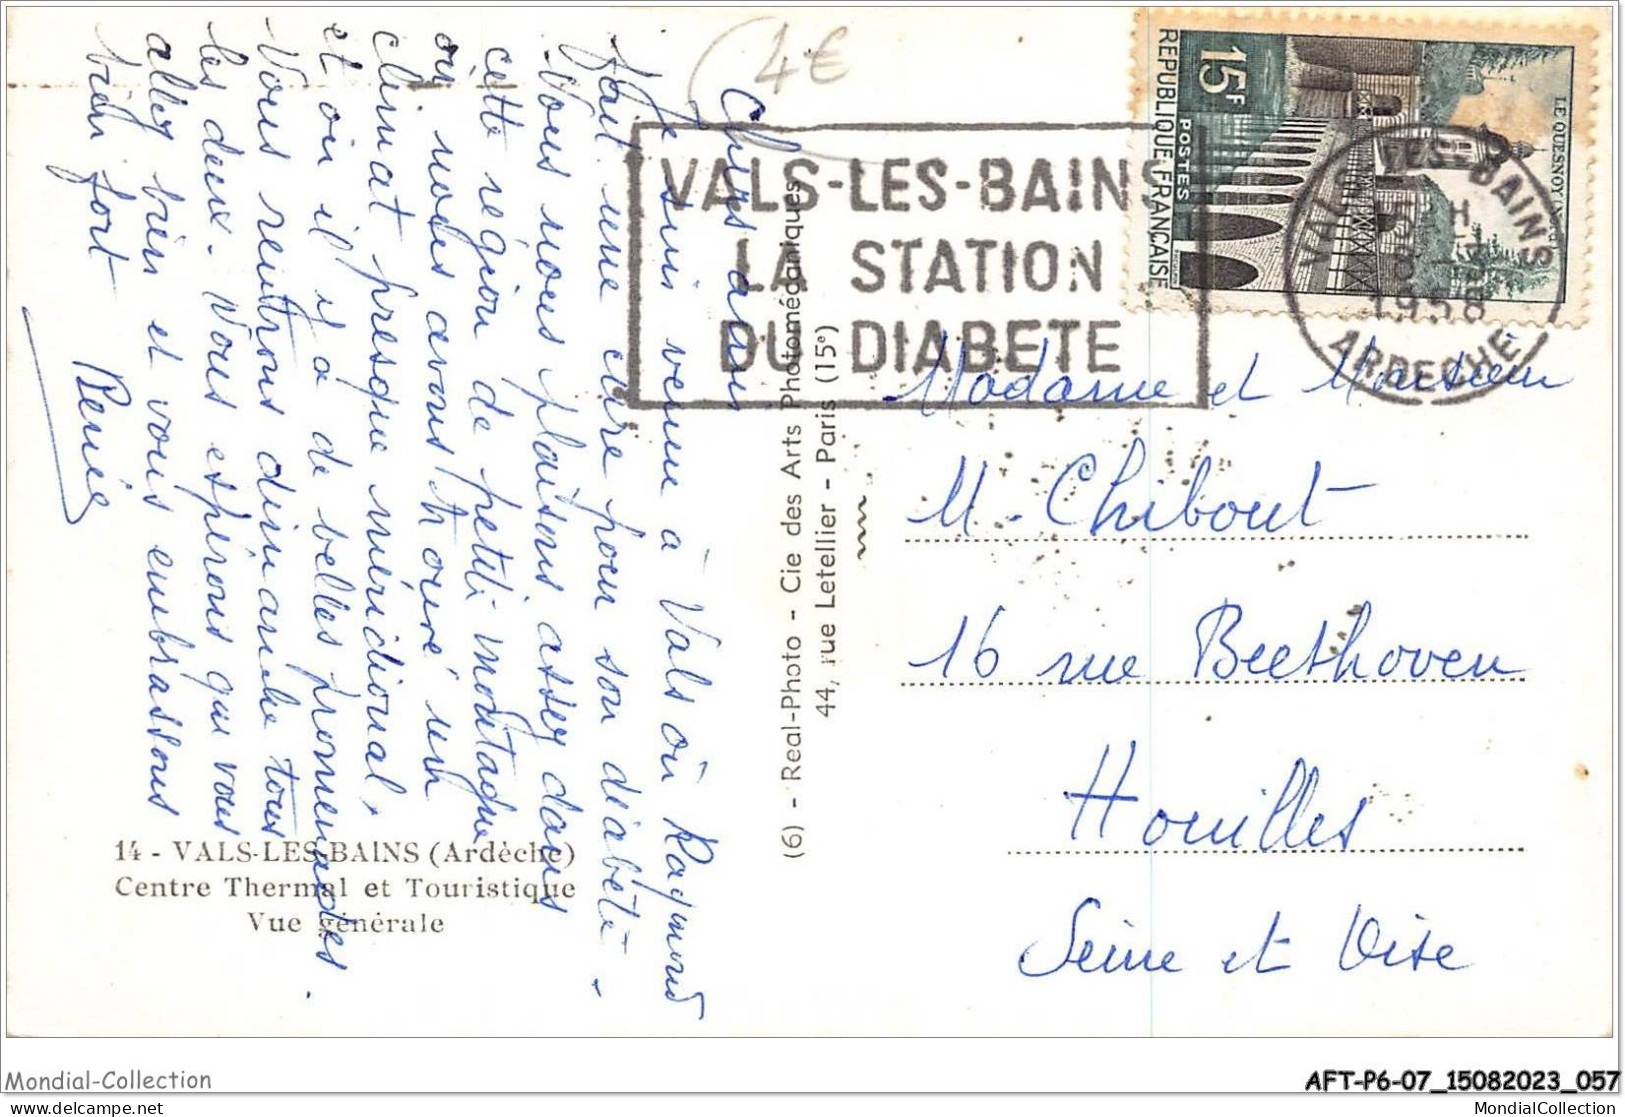 4€
Chers amis
Je suis venue à Vals où Raymond
fait une cure pour son diabète -
Nous nous plaisons assez dans
cette région de petite montagne
où nous avons trouvé un
climat presque méridional,
et où il y a de belles promenades.
Nous rentrons dimanche tous
les deux. Nous espérons que vous
allez bien et vous embrassons
bien fort
14 - VALS-LES-BAINS (Ardèche)
Centre Thermal et Touristique
Vue générale
(6) - Real-Photo - Cie des Arts Photomécaniques
44, rue Letellier - Paris (15e)
VALS-LES-BAINS
LA STATION
DU DIABETE
15F
POSTES
REPUBLIQUE FRANÇAISE
LE QUESNOY
VALS-LES-BAINS
1958
ARDECHE
Madame et Monsieur
M. Chibout
16 rue Beethoven
Houilles
Seine et Oise
Mondial-Collection
AFT-P6-07_15082023_057
delcampe.net
MondialCollection